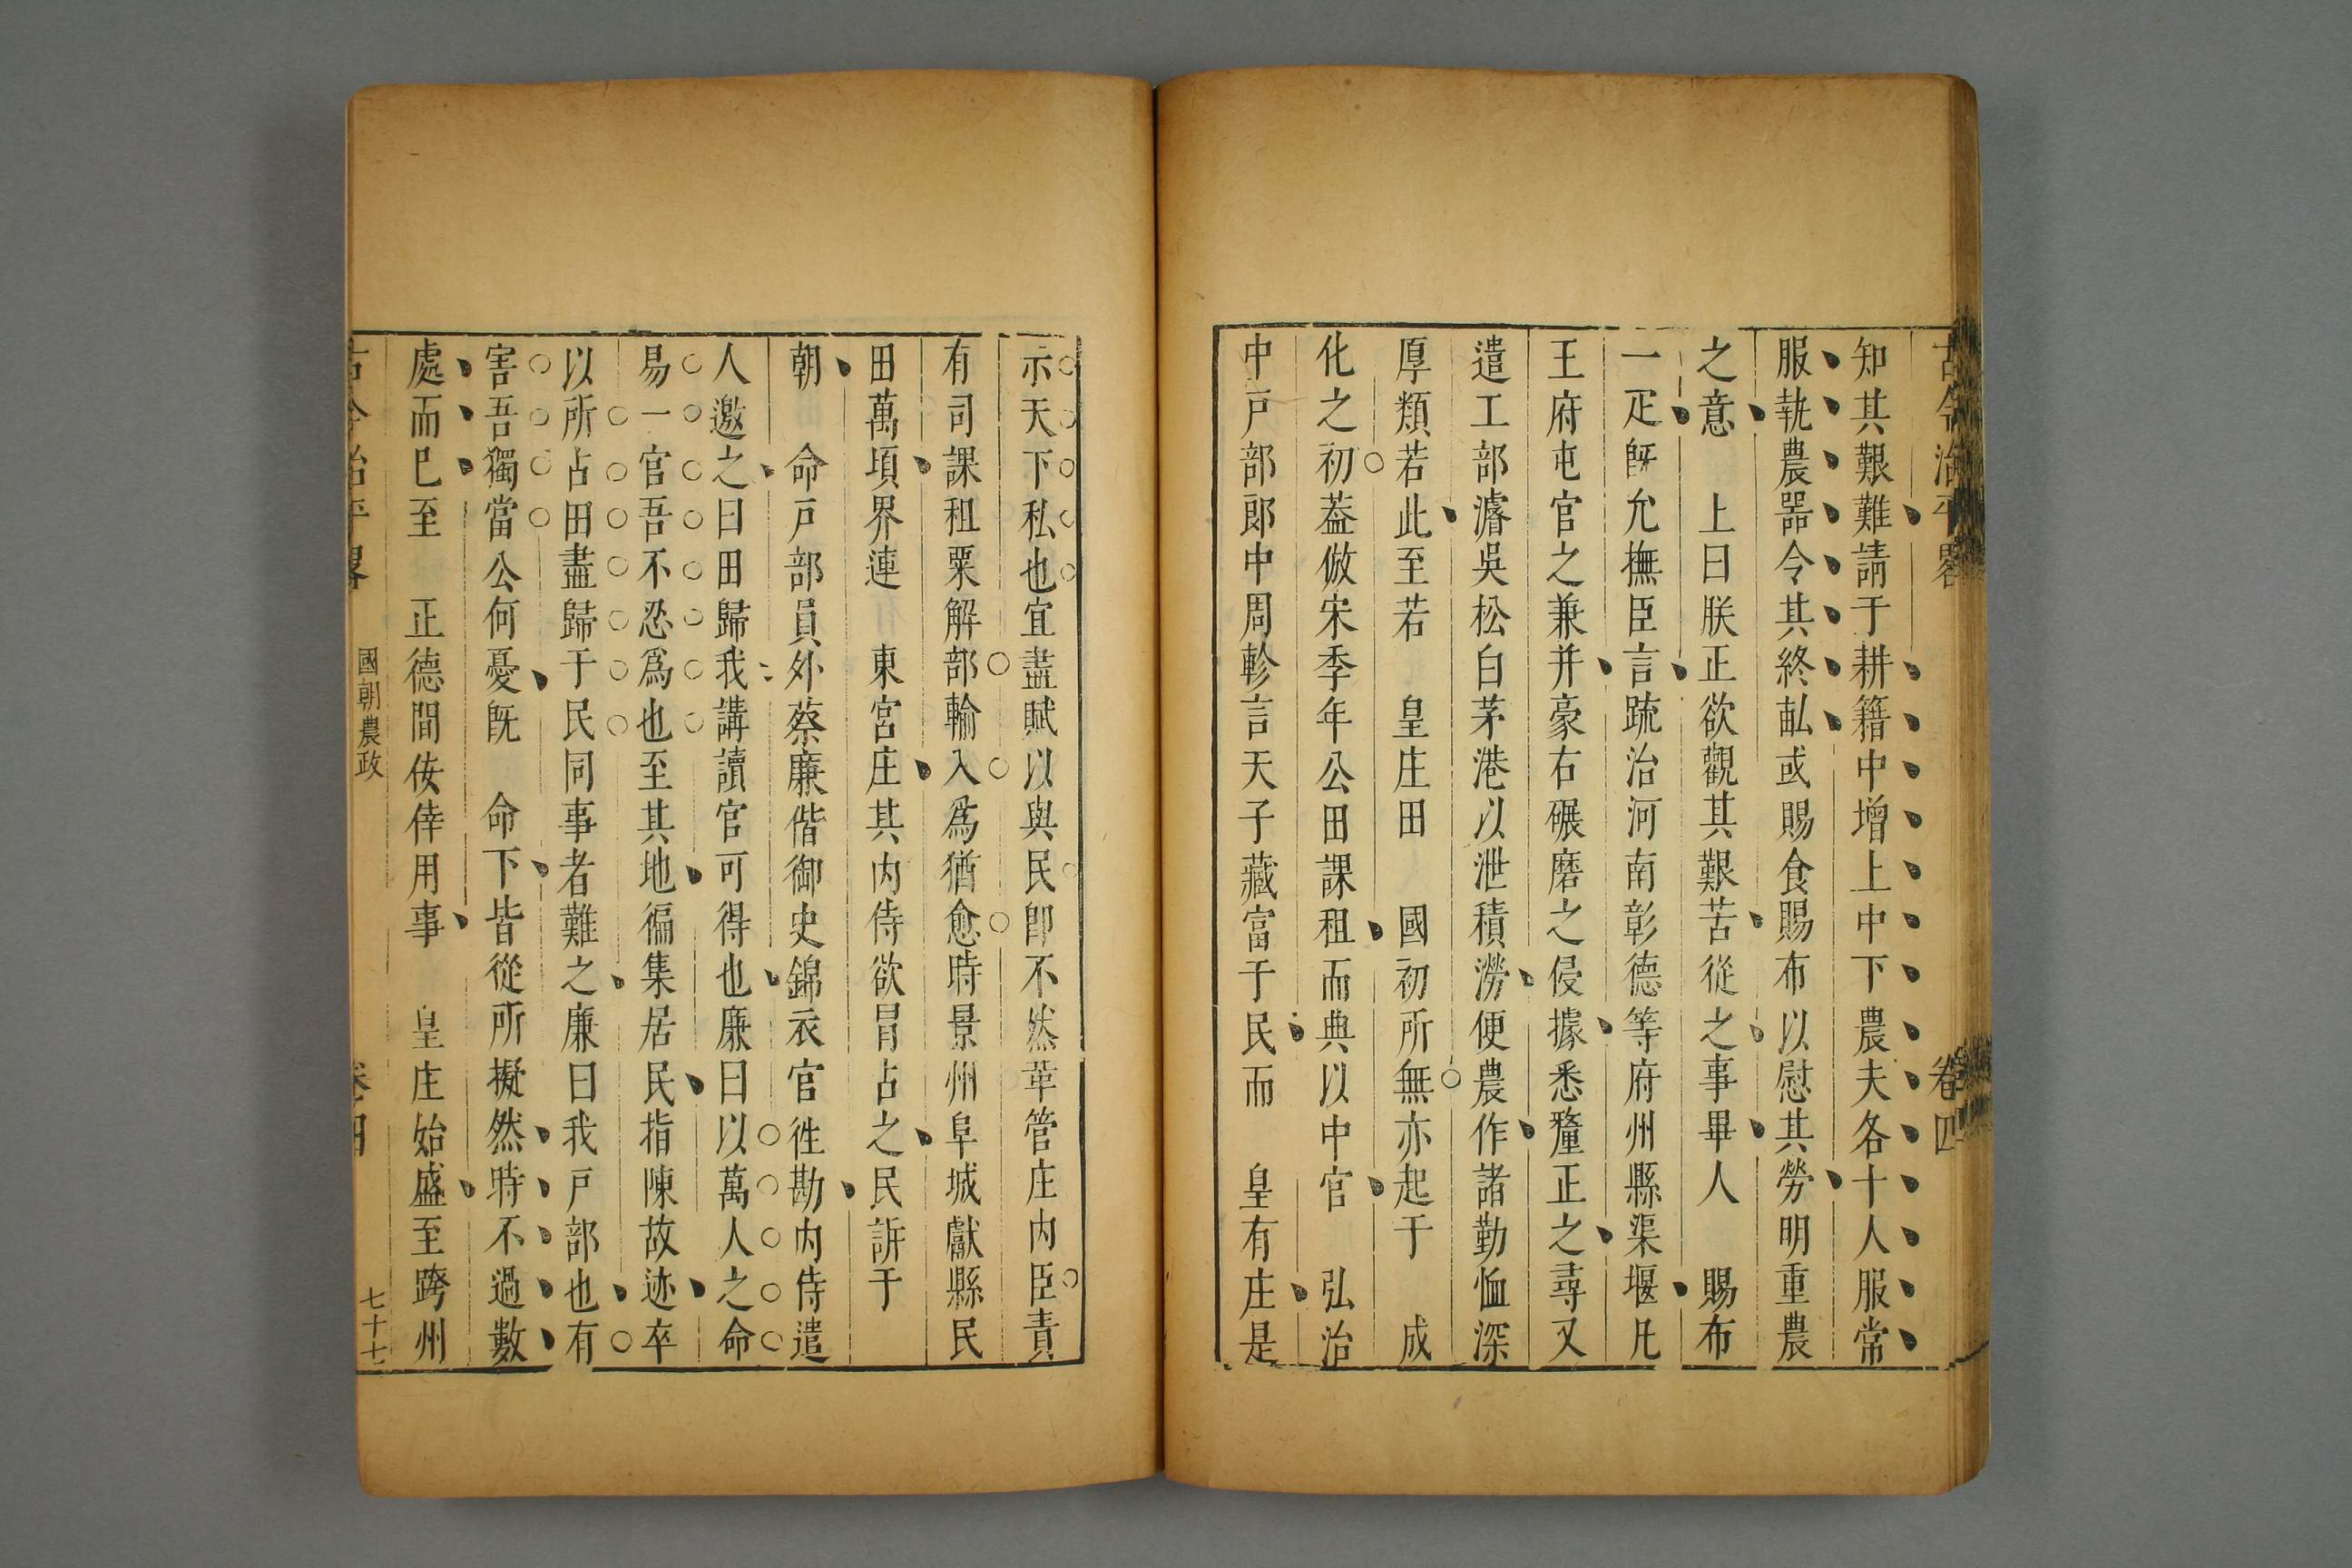 古今治平畧 卷四
知其艱難請于耕籍中增上中下農夫各十人服常
服執農器令其終畝或賜食賜布以慰其勞明重農
之意 上曰朕正欲觀其艱苦從之事畢人 賜布
一疋旣允撫臣言疏治河南彰德等府州縣渠堰凡
王府屯官之兼并豪右碾磨之侵據悉釐正之尋又
遣工部濬吳松白茅港以泄積澇便農作諸勤恤深
厚類若此至若 皇庄田 國初所無亦起于 成
化之初葢倣宋季年公田課租而典以中官 弘治
中戸部郎中周軫言天子藏富于民而 皇有庄是
示天下私也宜盡賦以與民卽不然革管庄内臣責
有司課租粟解部輸入爲猶愈時景州阜城獻縣民
田萬頃界連 東宮庄其内侍欲冒占之民訴于
朝 命戸部員外蔡廉偕御史錦衣官徃勘内侍遣
人邀之曰田歸我講讀官可得也廉曰以萬人之命
易一官吾不忍爲也至其地徧集居民指陳故迹卒
以所占田盡歸于民同事者難之廉曰我戸部也有
害吾獨當公何憂旣 命下皆從所擬然時不過數
處而已至 正德間佞倖用事 皇庄始盛至跨州
古今治平畧 國朝農政 卷四 七十七